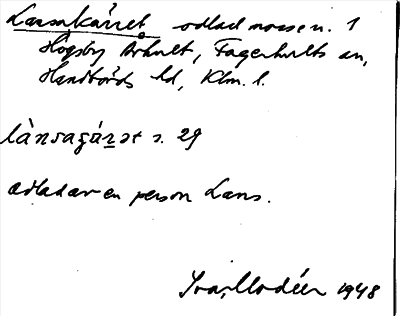 Larsakärret odlad mosse n. 1
Högsby Århult, Fagerhults sn,
Handbörds hd, Klm. l.
s. 29
odlad av en person Lars.
Ivar Modéer 1948